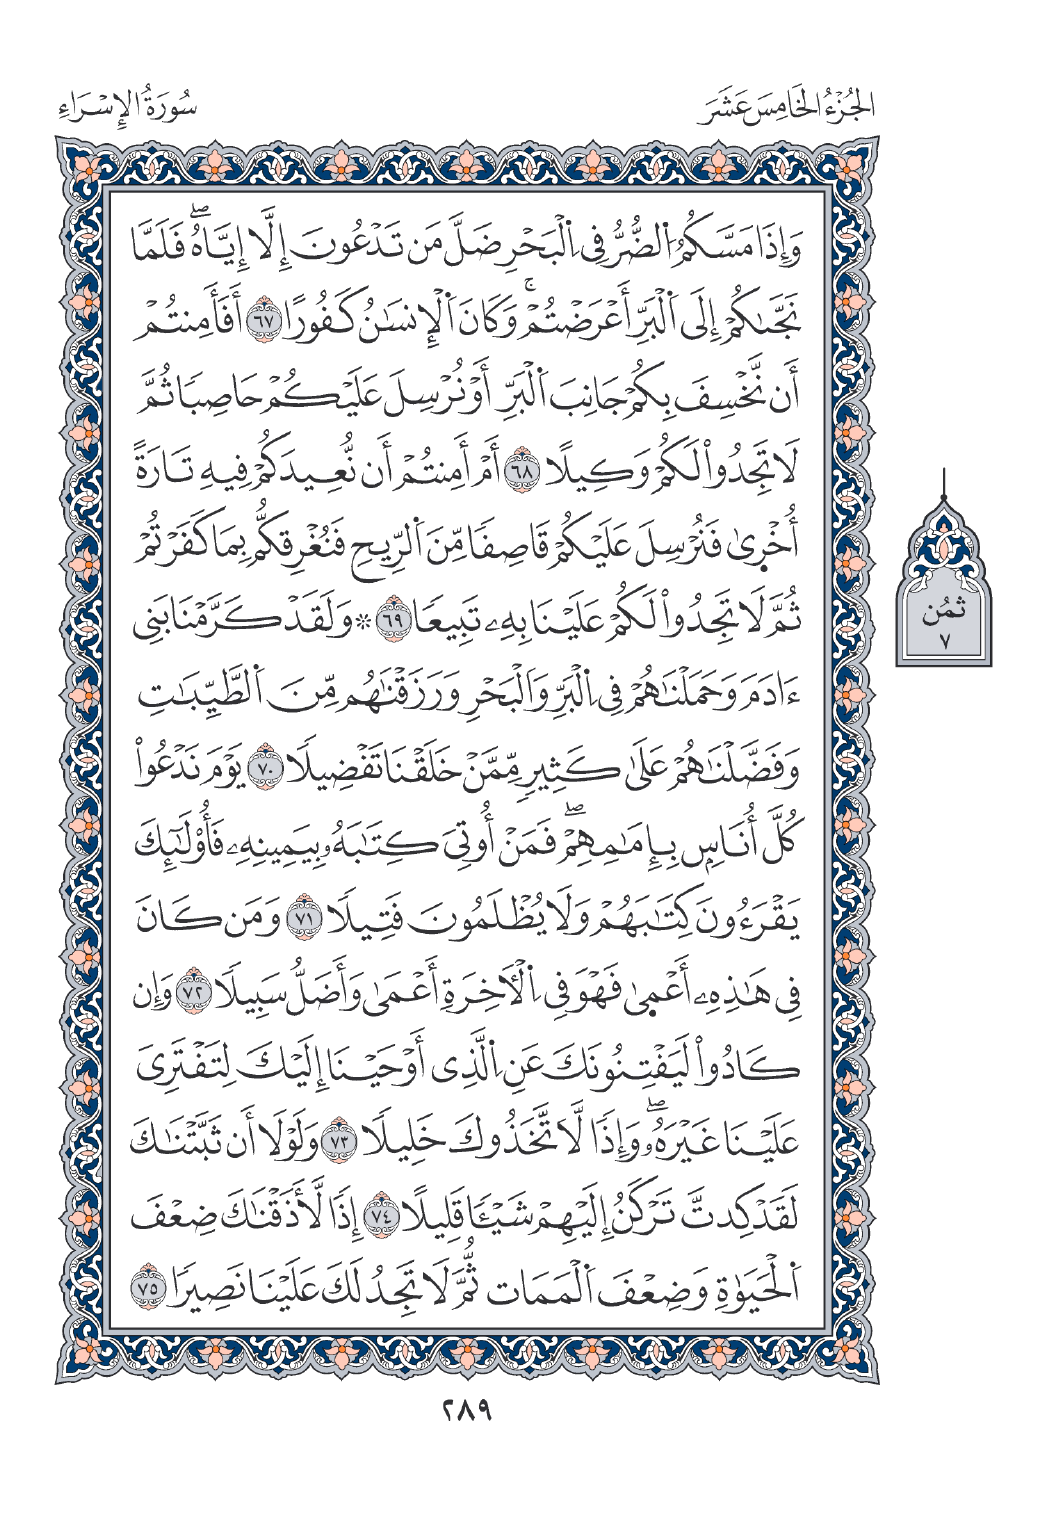 الجُزْءُ الخَامِسَ عَشَرَ
سُورَةُ الإِسْرَاءِ
وَإِذَا مَسَّكُمُ اُ۬لضُّرُّ فِي اِ۬لْبَحْرِ ضَلَّ مَن تَدْعُونَ إِلَّا إِيَّاهُۖ فَلَمَّا
نَجَّىٰكُمْ إِلَى اَ۬لْبَرِّ أَعْرَضْتُمْۚ وَكَانَ اَ۬لْإِنسَٰنُ كَفُورًا ٦٧ أَفَأَمِنتُمْ
أَن نَّخْسِفَ بِكُمْ جَانِبَ اَ۬لْبَرِّ أَوْ نُرْسِلَ عَلَيْكُمْ حَاصِبٗا ثُمَّ
لَا تَجِدُواْ لَكُمْ وَكِيلًا ٦٨ أَمْ أَمِنتُمْ أَن نُّعِيدَكُمْ فِيهِ تَارَةً
أُخْر۪يٰ فَنُرْسِلَ عَلَيْكُمْ قَاصِفٗا مِّنَ اَ۬لرِّيحِ فَنُغْرِقَكُم بِمَا كَفَرْتُمْ
ثُمَّ لَا تَجِدُواْ لَكُمْ عَلَيْنَا بِهِۦ تَبِيعٗا ٦٩ ۞ وَلَقَدْ كَرَّمْنَا بَنِي
ءَادَمَ وَحَمَلْنَٰهُمْ فِي اِ۬لْبَرِّ وَالْبَحْرِ وَرَزَقْنَٰهُم مِّنَ اَ۬لطَّيِّبَٰتِ
وَفَضَّلْنَٰهُمْ عَلَىٰ كَثِيرٖ مِّمَّنْ خَلَقْنَا تَفْضِيلٗا ٧٠ يَوْمَ نَدْعُواْ
كُلَّ أُنَاسِۭ بِإِمَٰمِهِمْۖ فَمَنْ أُوتِيَ كِتَٰبَهُۥ بِيَمِينِهِۦ فَأُوْلَٰٓئِكَ
يَقْرَءُونَ كِتَٰبَهُمْ وَلَا يُظْلَمُونَ فَتِيلٗا ٧١ وَمَن كَانَ
فِي هَٰذِهِۦ أَعْم۪يٰ فَهْوَ فِي اِ۬لْأٓخِرَةِ أَعْمَىٰ وَأَضَلُّ سَبِيلٗا ٧٢ وَإِن
كَادُواْ لَيَفْتِنُونَكَ عَنِ اِ۬لَّذِي أَوْحَيْنَا إِلَيْكَ لِتَفْتَرِيَ
عَلَيْنَا غَيْرَهُۥۖ وَإِذٗا لَّا تَّخَذُوكَ خَلِيلٗا ٧٣ وَلَوْلَا أَن ثَبَّتْنَٰكَ
لَقَدْ كِدتَّ تَرْكَنُ إِلَيْهِمْ شَيْـٔٗا قَلِيلًا ٧٤ إِذٗا لَّأَذَقْنَٰكَ ضِعْفَ
اَ۬لْحَيَوٰةِ وَضِعْفَ اَ۬لْمَمَاتِ ثُمَّ لَا تَجِدُ لَكَ عَلَيْنَا نَصِيرٗا ٧٥
ثُمُن
٧
٢٨٩